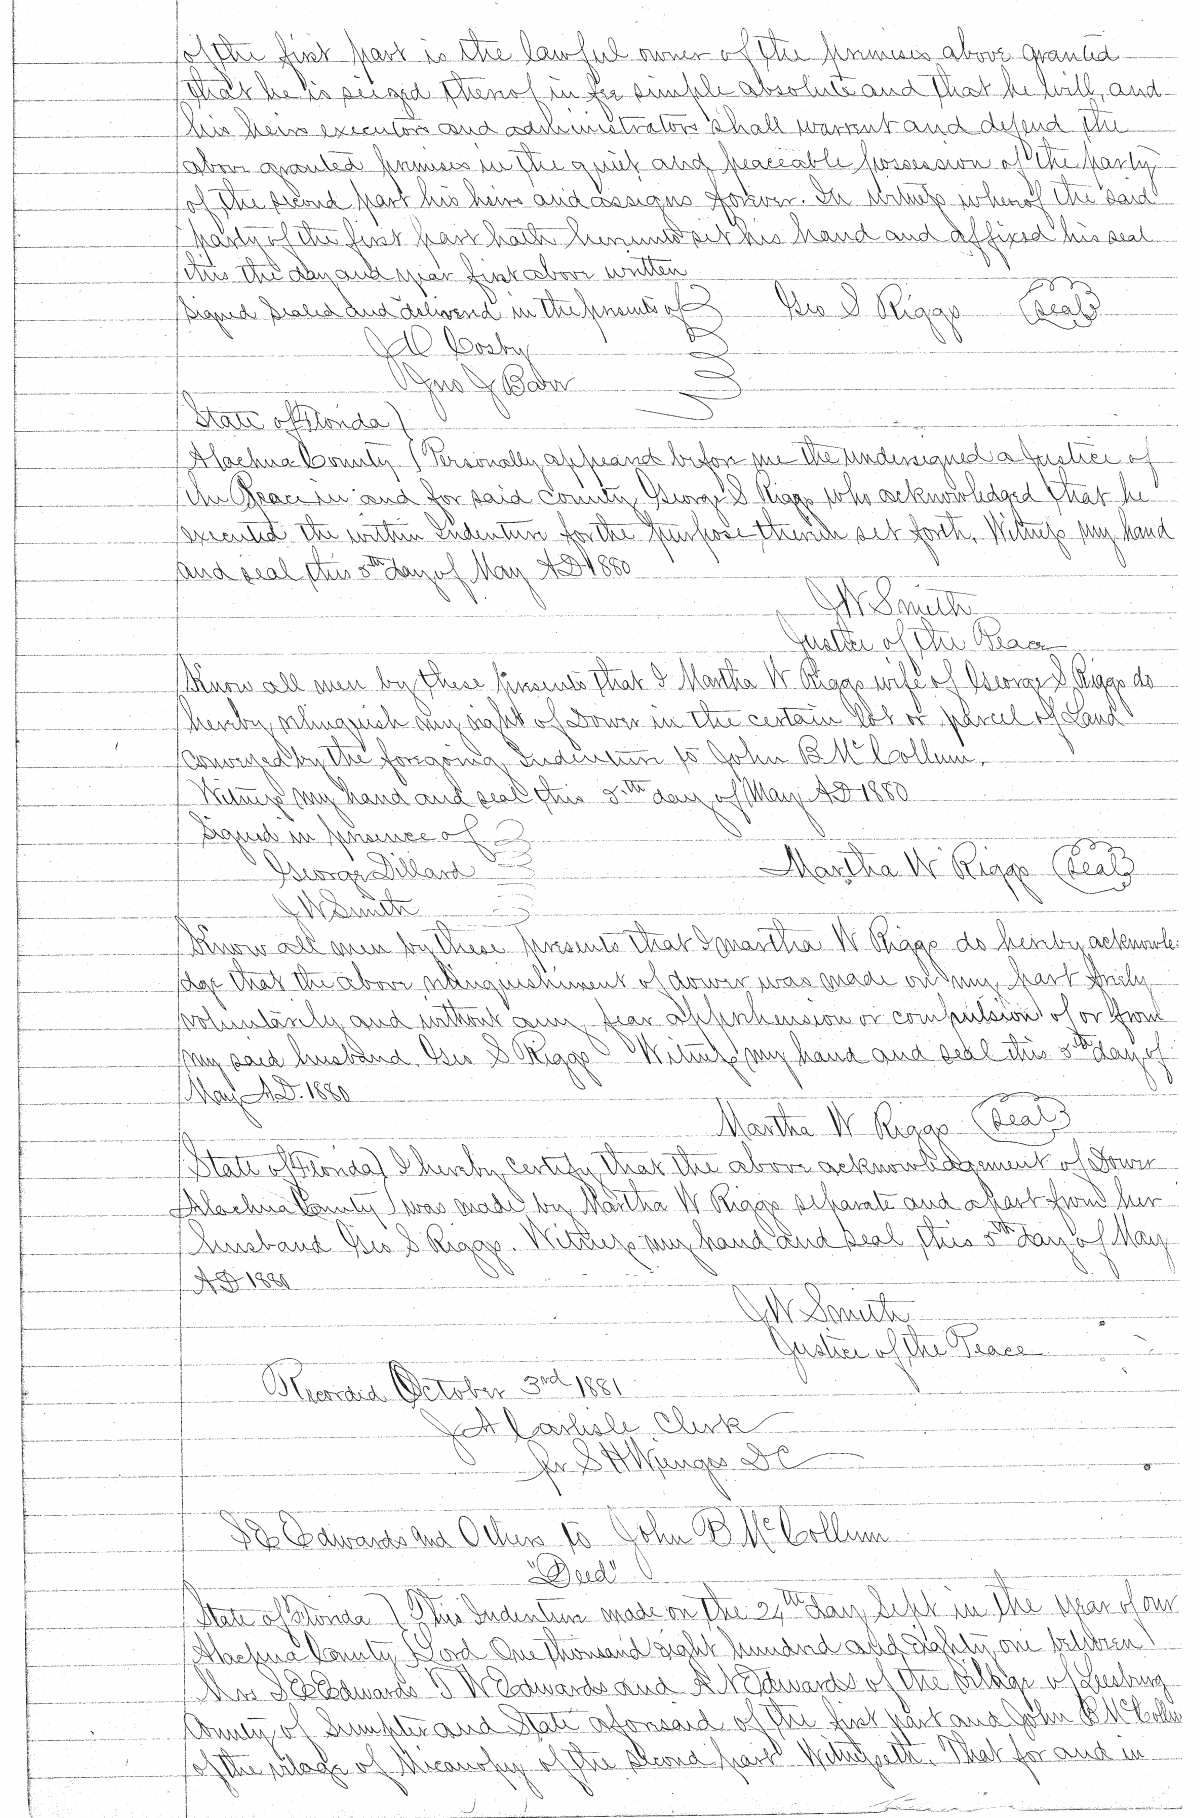 of the first part is the lawful owner of the premises above granted
that he is seized thereof in fee simple absolute and that he will, and
his heirs executors and administrators shall warrent and defend the
above granted premises in the quiet and peaceable possession of the party
of the second part his heirs and assigns forever. In witness whereof the said
party of the first part hath hereunto set his hand and affixed his seal
this the day and year first above written
Signed Sealed and delivered in the presents of Geo S Riggs (Seal)
Cosby
Jno J Barr
State of Florida
Alachua County Personally appeared before me the undersigned a Justice of
the Peace in and for said county George S Riggs who acknowledged that he
executed the within Indenture for the purpose therein set forth. Witness my hand
and seal this 5th day of May AD 1880
JW Smith
Justice of the Peace
Know all men by these presents that I Martha W Riggs wife of George S Riggs do
hereby relinquish my right of Dower in the certain lot or parcel of Land
conveyed by the foregoing Indenture to John B McCollum.
Witness my hand and seal this 5th day of May AD 1880
Signed in presence of
George Dillard Martha W Riggs (Seal)
JW Smith
Know all men by these presents that I Martha W Riggs do hereby acknowle-
dge that the above relinquishment of dower was made on my part freely
voluntarily and without any fear apprehension or compulsion of or from
my said husband Geo S Riggs Witness my hand and seal this 5th day of
May AD. 1880
Martha W Riggs (Seal)
State of Florida I hereby certify that the above acknowledgement of Dower
Alachua County was made by Martha W Riggs separate and apart from her
husband Geo S Riggs. Witness my hand and seal this 5th day of May
AD 1880
JW Smith
Justice of the Peace
Recorded October 3rd 1881
J A Carlisle Clerk
pr S H Wienges DC
S E Edwards and Others to John B McCollum
"Deed"
State of Florida This Indenture made on the 24th day Sept in the year of our
Alachua County Lord One thousand eight hundred and Eighty one between
Mrs S E Edwards T W Edwards and A N Edwards of the Village of Leesburg
County of Sumpter and State aforesaid of the first part and John B McCollum
of the village of Micanopy of the second part Witnesseth. That for and in